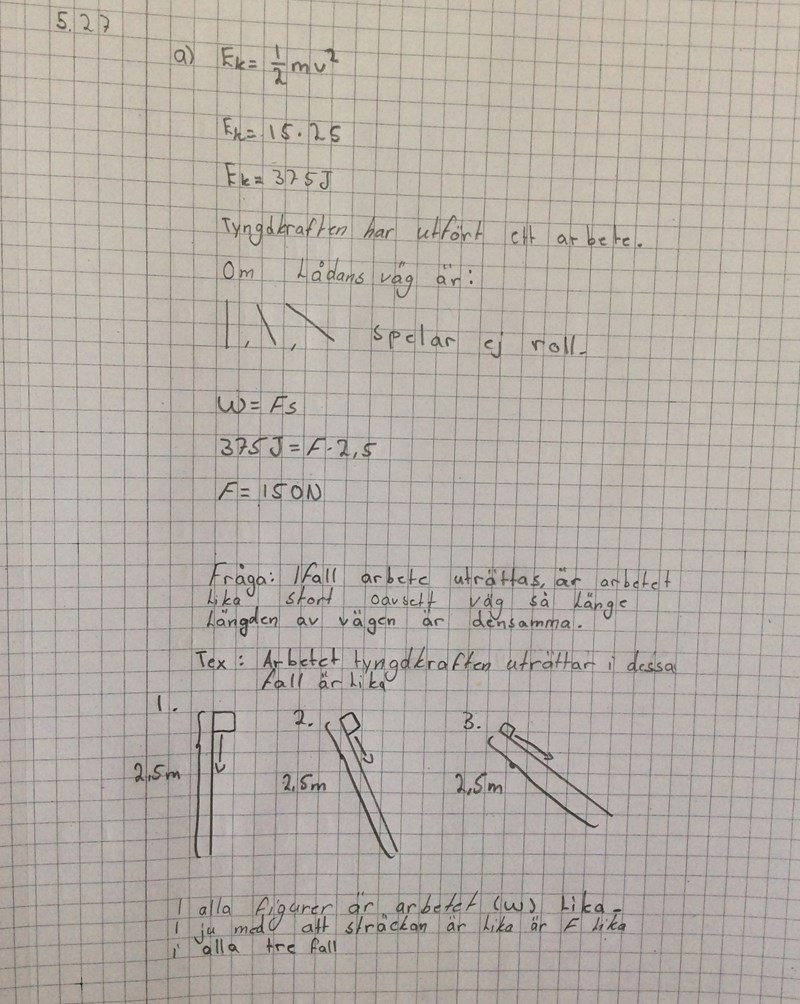 5.27
a) Ek = 1/2 mv²
Ek = 15·25
Ek = 375J
Tyngdkraften har utfört ett arbete.
Om Lådans väg är:
spelar ej roll.
W = Fs
375J = F·2,5
F = 150N
Fråga: Ifall arbete uträttas, är arbetet
Lika stort oavsett väg så Länge
Längden av vägen är densamma.
Tex: Arbetet tyngdkraften uträttar i dessa
fall är Lika
1. 2. 3.
2,5m 2,5m 2,5m
I alla figurer är arbetet (W) Lika.
I ju med att sträckan är Lika är F Lika
i alla tre fall